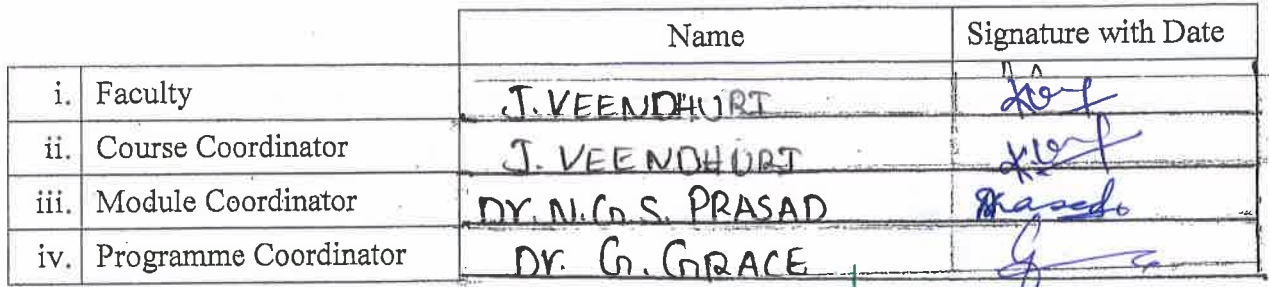 Name Signature with Date
i. Faculty J. VEENDHURI
ii. Course Coordinator J. VEENDHURI
iii. Module Coordinator Dr. N.G.S. PRASAD Prasad
iv. Programme Coordinator Dr. G. GRACE